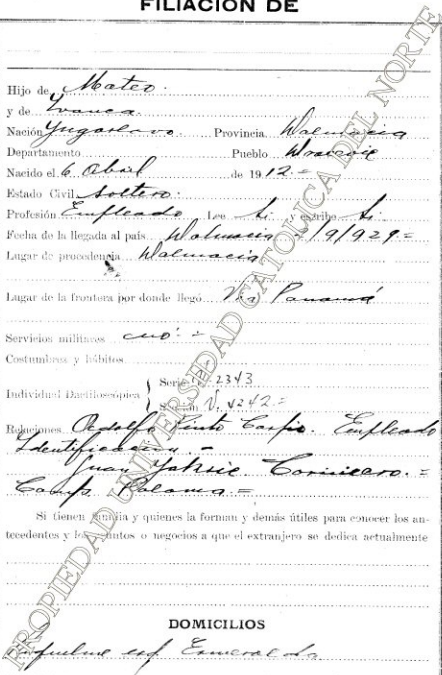 FILIACIÓN DE
Hijo de Mateo.
y de Ivanca
Nación Yugoslavo Provincia Dalmacia
Departamento Pueblo
Nacido el 6 Abril de 1912.=
Estado Civil soltero.
Profesión Empleado Lee Si, escribe Si.
Fecha de la llegada al país 1/9/929=
Lugar de procedencia Dalmacia
Lugar de la frontera por donde llegó Via Panamá
Servicios militares
Costumbres y hábitos
Individual Dactiloscópica
Serie 2343
Sección V. 4242.=
Relaciones Pinto Carpio. Empleado
Identificación =
Juan Carnicero. =
Camp. Paloma. =
Si tienen familia y quienes la forman y demás útiles para conocer los an-
tecedentes y los asuntos o negocios a que el extranjero se dedica actualmente
DOMICILIOS
esq. Esmeralda
PROPIEDAD UNIVERSIDAD CATOLICA DEL NORTE